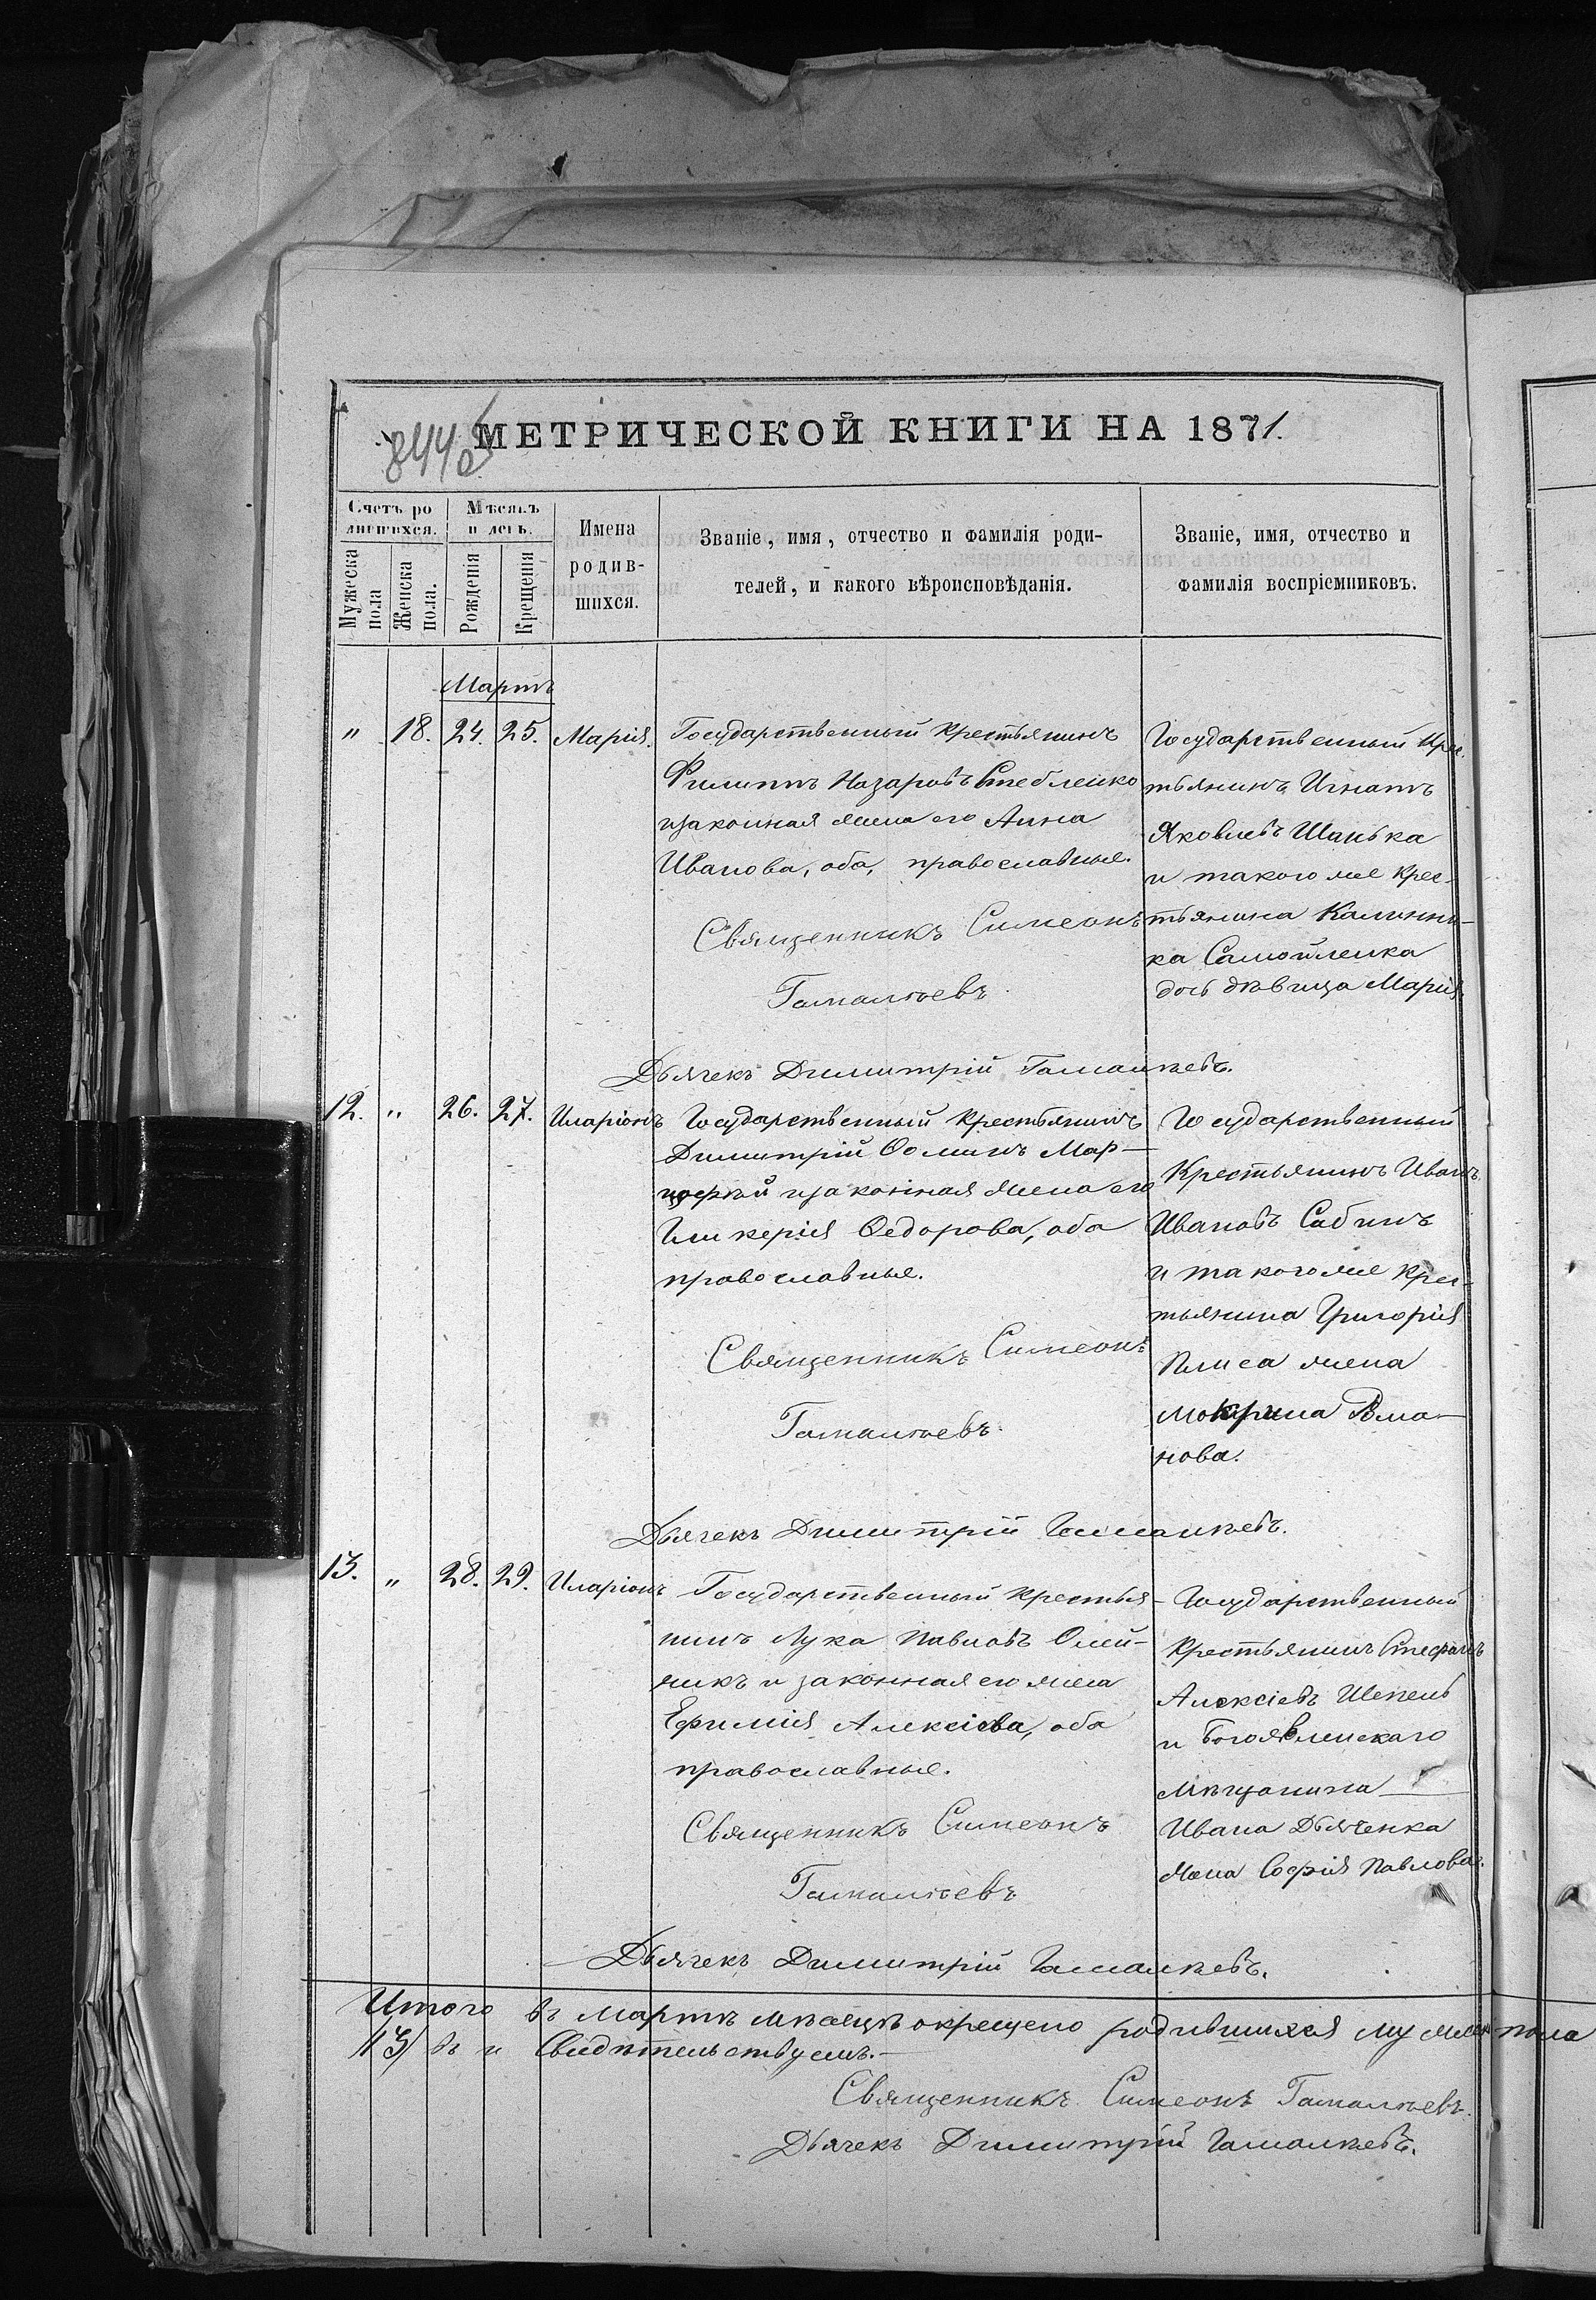 844 об
МЕТРИЧЕСКОЙ КНИГИ НА 1871.
Счетъ ро
дившихся.
Мѣсяцъ
и день.
Мужеска
пола
Женска
пола.
Рожденія
Крещенія
Имена
родив-
шихся.
Званіе, имя, отчество и фамилія роди-
телей, и какого вѣроисповѣданія.
Званіе, имя, отчество и
фамилія воспріемниковъ.
Мартъ
" 18. 24. 25. Марія.
Государственный крестьянинъ
Филиппъ Назаровъ Стебленко
изаконная жена его Анна
Иванова, оба, православные.
Священникъ Симеонъ
Гамалѣевъ
Государственный Крес.
тьянинъ Игнатъ
Яковлевъ Шанька
и такого же крес-
тьянина Калинни-
ка Самойленка
дочь дѣвица Марія.
Дьячекъ Димитрій Гамалѣевъ.
12. " 26. 27. Иларіонъ
Государственный Крестьянинъ
Димитрій Ѳоминъ Мар-
изаконная жена его
Гликерія Ѳедорова, оба
православные.
Священникъ Симеонъ
Гамалѣевъ
Государственный
Крестьянинъ Иванъ
Ивановъ Сабинъ
и такогоже крес-
тьянина Григорія
Плиса жена
Мокрина
нова.
Дьячекъ Димитрій Гамалѣевъ.
13. " 28. 29. Иларіонъ
Государственный крестья-
нинъ Лука Павловъ Олей-
никъ и законная его жена
Ефимія Алексіева, оба
православные.
Священникъ Симеонъ
Гамалѣевъ
Государственный
Крестьянинъ Стефанъ
Алексіевъ Шепель
и Богоявленскаго
мѣщанина
Ивана Дьяченка
жена Софія Павлова.
Дьячекъ Димитрій Гамалѣевъ.
Итого въ Мартѣ мѣсяцѣ окрещено родившихся мужеск пола
въ и Свидѣтельствуемъ.
Священникъ Симеонъ Гамалѣевъ
Дьячекъ Димитрій Гамалѣевъ.